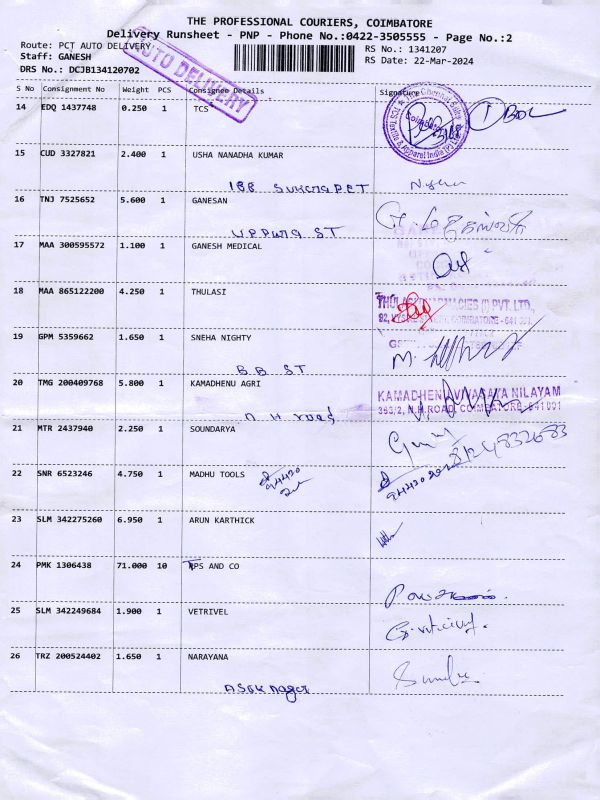 THE PROFESSIONAL COURIERS, COIMBATORE
Delivery Runsheet - PNP - Phone No.:0422-3505555 - Page No.:2
Route: PCT AUTO DELIVERY
RS No.: 1341207
Staff: GANESH
RS Date: 22-Mar-2024
DRS No.: DCJB134120702
AUTO DELIVERY
S No Consignment No Weight PCS Consignee Details Signature
14 EDQ 1437748 0.250 1 TCS
15 CUD 3327821 2.400 1 USHA NANADHA KUMAR
16 TNJ 7525652 5.600 1 GANESAN
UPPUra ST
17 MAA 300595572 1.100 1 GANESH MEDICAL
18 MAA 865122200 4.250 1 THULASI
19 GPM 5359662 1.650 1 SNEHA NIGHTY
B.B. ST
20 TMG 200409768 5.800 1 KAMADHENU AGRI
KAMADHENU VIVASAYA NILAYAM
383/2, N.H.ROAD, COIMBATORE-641 001
N H road
21 MTR 2437940 2.250 1 SOUNDARYA
8124832683
22 SNR 6523246 4.750 1 MADHU TOOLS
23 SLM 342275260 6.950 1 ARUN KARTHICK
24 PMK 1306438 71.000 10 TPS AND CO
25 SLM 342249684 1.900 1 VETRIVEL
26 TRZ 200524402 1.650 1 NARAYANA
Asok nager